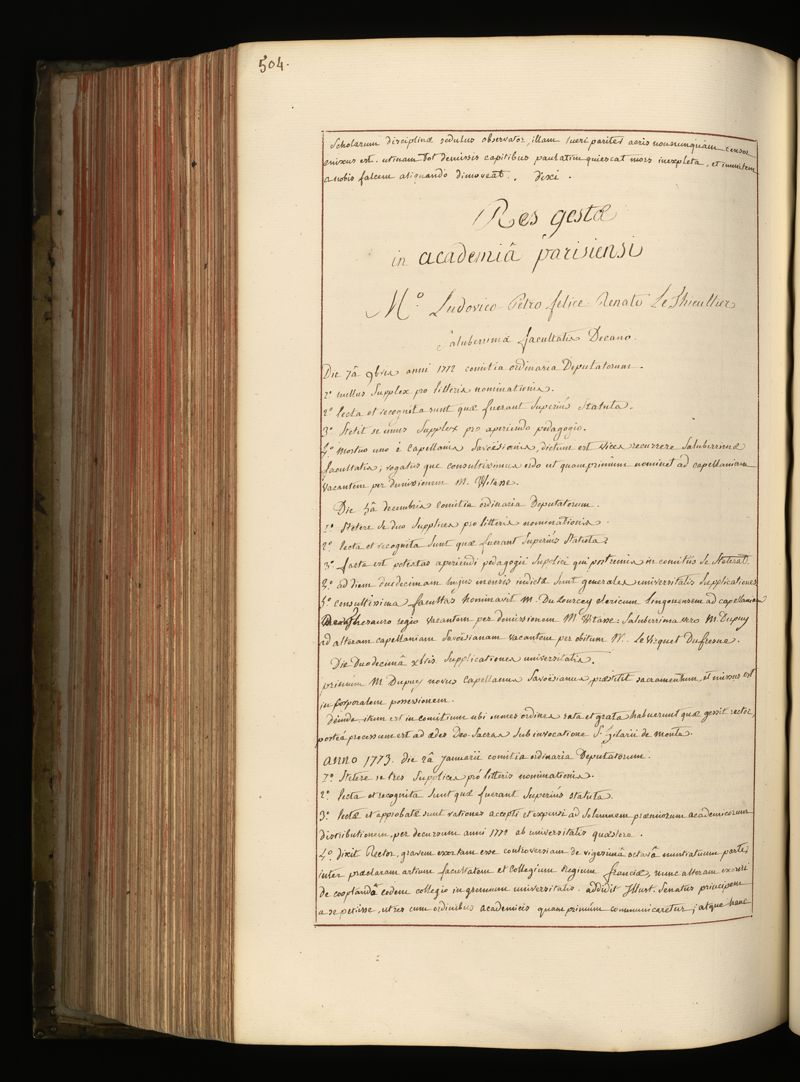 504.
Scholarum disciplinæ sedulus observator, illam fueri pariter acris nonnunquam censor
enixus est. utinam tot demissis capitibus paulatim quiescat mors inexpleta, et immitem
a nobis falcem aliquando dimoveat. dixi.
Res gestæ
in academiâ parisiensi
M.º Ludovico Petro felice Renato Le Thieullier
Saluberrimæ facultatis Decano.
Die 7â 9bris anni 1772 comitia ordinaria Deputatorum.
1º nullus Supplex pro litteris nominationis.
2º lecta et recognita sunt quæ fuerant Superius Statuta.
3º Stetit se unus Supplex pro aperiendo pedagogio.
4º Mortuo uno è Capellanis Savoësianis, dictum est vices recurrere Saluberrimæ
facultatis; rogatus que consultissimus ordo ut quamprimum nominet ad capellaniam
vacantem per dimissionem M. Witasse.
Die 5â decembris comitia ordinaria Deputatorum.
1º Stetere se duo Supplices pro litteris nominationis.
2º lecta et recognita Sunt quæ fuerant Superius Statuta.
3º facta est potestas aperiendi pedagogii Supplici qui postremis in comitiis se Steterat.
4º ad diem duodecimam hujus mensis indictæ Sunt generales universitatis Supplicationes
5º consultissima facultas nominavit M. Du Lourcey clericum lingonensem ad capellaniam
Thesauro regio vacantem per dimissionem M.i Witasse: Saluberrima vero M. Dupuy
ad alteram capellaniam Savoësianam vacantem per obitum M. Le Vicquet Dufresne.
Die Duodecimâ xbris Supplicationes universitatis.
primùm M. Dupuy novus Capellanus Savoësianus, præstitit sacramentum, et missus est
in corporalem possessionem.
deinde itum est in comitium ubi omnes ordines rata et grata habuerunt quæ gessit rector,
posteà processum est ad ædes Deo Sacras Sub invocatione S.i hilarii de monte.
anno 1773. die 2â Januarii comitia ordinaria Deputatorum.
1º Stetere se tres Supplices pro litteris nominationis.
2º lecta et recognita Sunt quæ fuerant Superius statuta.
3º lectæ et approbatæ sunt rationes accepti et expensi ad Solemnem præmiorum academicorum
distributionem, per decursum anni 1772 ab universitatis quæstore.
4º dixit Rector, gravem exortam esse controversiam de vigesimâ octavâ nuntiatuum parte,
inter præclaram artium facultatem et Collegium Regium franciæ, nunc alteram exoriri
de cooptando eodem collegio in gremium universitatis. addidit Illust. Senatus principem
a se petiisse, ut res cum ordinibus academicis quamprimùm communicaretur; atque hanc